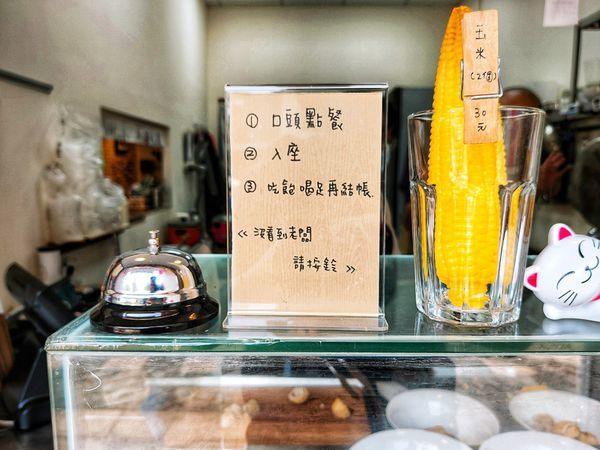 ① 口頭點餐
② 入座
③ 吃飽喝足再結帳.
《 沒看到老闆
請按鈴 》
玉
米
(2個)
30
元